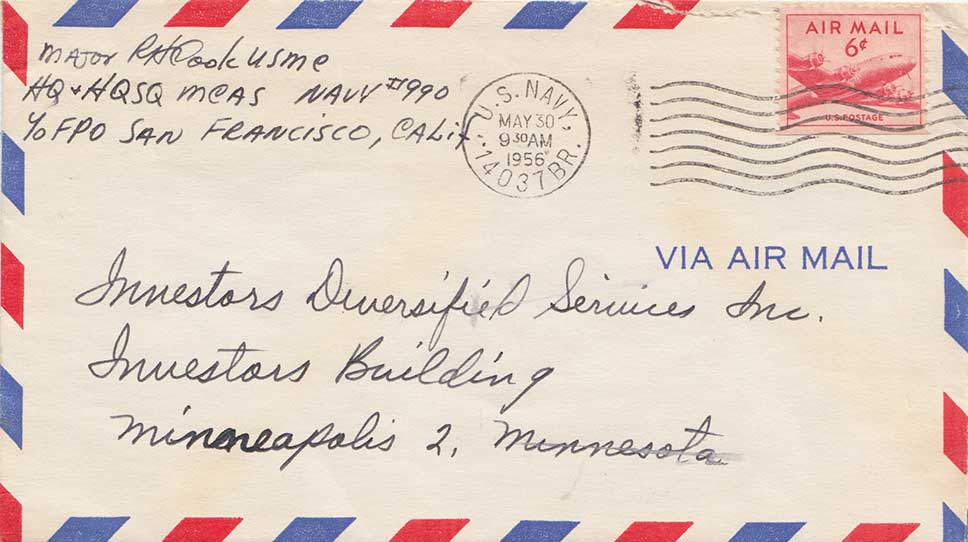 Major RHCook USMC
HQ & HQSQ MCAS NAVY #990
℅ FPO SAN FRANCISCO, CALIF
U.S. NAVY,
MAY 30
9 30 AM
1956
14037 BR.
AIR MAIL
6¢
U.S. POSTAGE
VIA AIR MAIL
Investors Diversified Services Inc.
Investors Building
Minneapolis 2, Minnesota